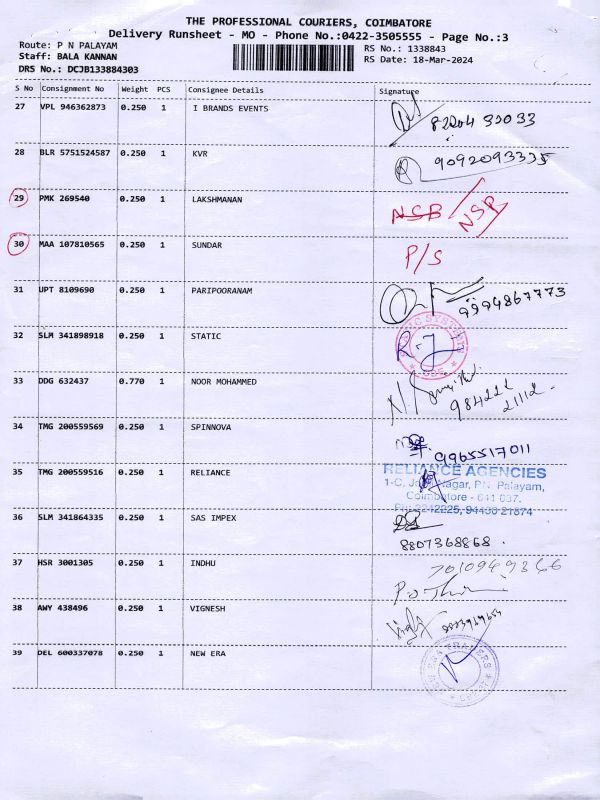 THE PROFESSIONAL COURIERS, COIMBATORE
Delivery Runsheet - MO - Phone No.:0422-3505555 - Page No.:3
Route: P N PALAYAM
RS No.: 1338843
Staff: BALA KANNAN
RS Date: 18-Mar-2024
DRS No.: DCJB133884303
S No Consignment No Weight PCS Consignee Details Signature
27 VPL 946362873 0.250 1 I BRANDS EVENTS
28 BLR 5751524587 0.250 1 KVR 9092093335
29 PMK 269540 0.250 1 LAKSHMANAN NSB / NSP
30 MAA 107810565 0.250 1 SUNDAR P/S
31 UPT 8109690 0.250 1 PARIPOORANAM 9994867773
32 SLM 341898918 0.250 1 STATIC
33 DDG 632437 0.770 1 NOOR MOHAMMED
984222
21112
34 TMG 200559569 0.250 1 SPINNOVA 9965517011
35 TMG 200559516 0.250 1 RELIANCE
RELIANCE AGENCIES
Nagar, P.N. Palayam,
Coimbatore - 641 037.
Ph: 2242225, 94430 21874
36 SLM 341864335 0.250 1 SAS IMPEX
8807368868
37 HSR 3001305 0.250 1 INDHU
38 AWY 438496 0.250 1 VIGNESH
39 DEL 600337078 0.250 1 NEW ERA